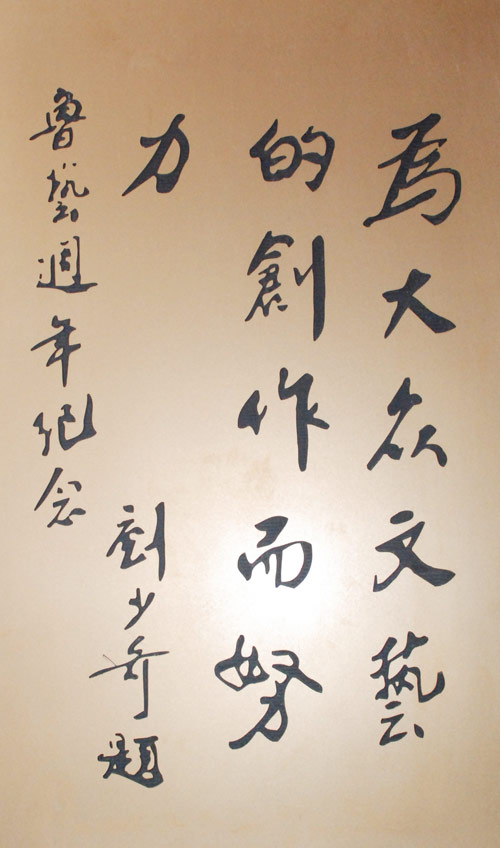 為大众文藝
的創作而努
力
劉少奇題
魯藝週年紀念